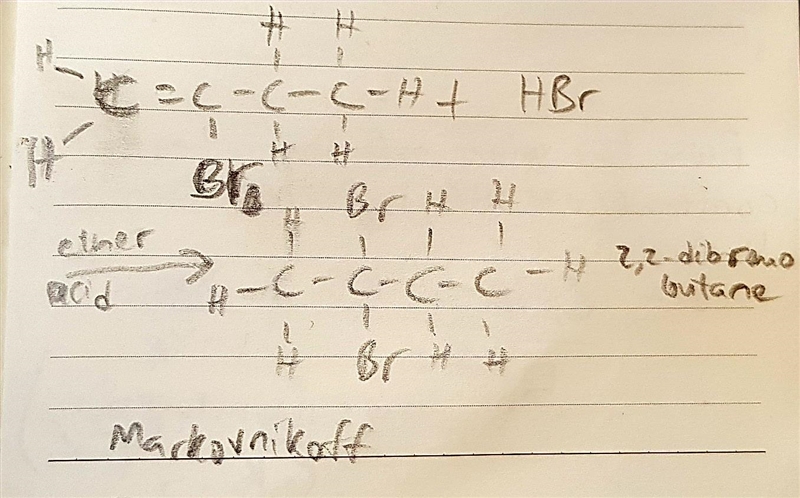 H H H
C = C - C - C - H + HBr
H Br H H
H Br H H
ether
acid
H - C - C - C - C - H 2,2-dibromo
butane
H Br H H
Markovnikoff